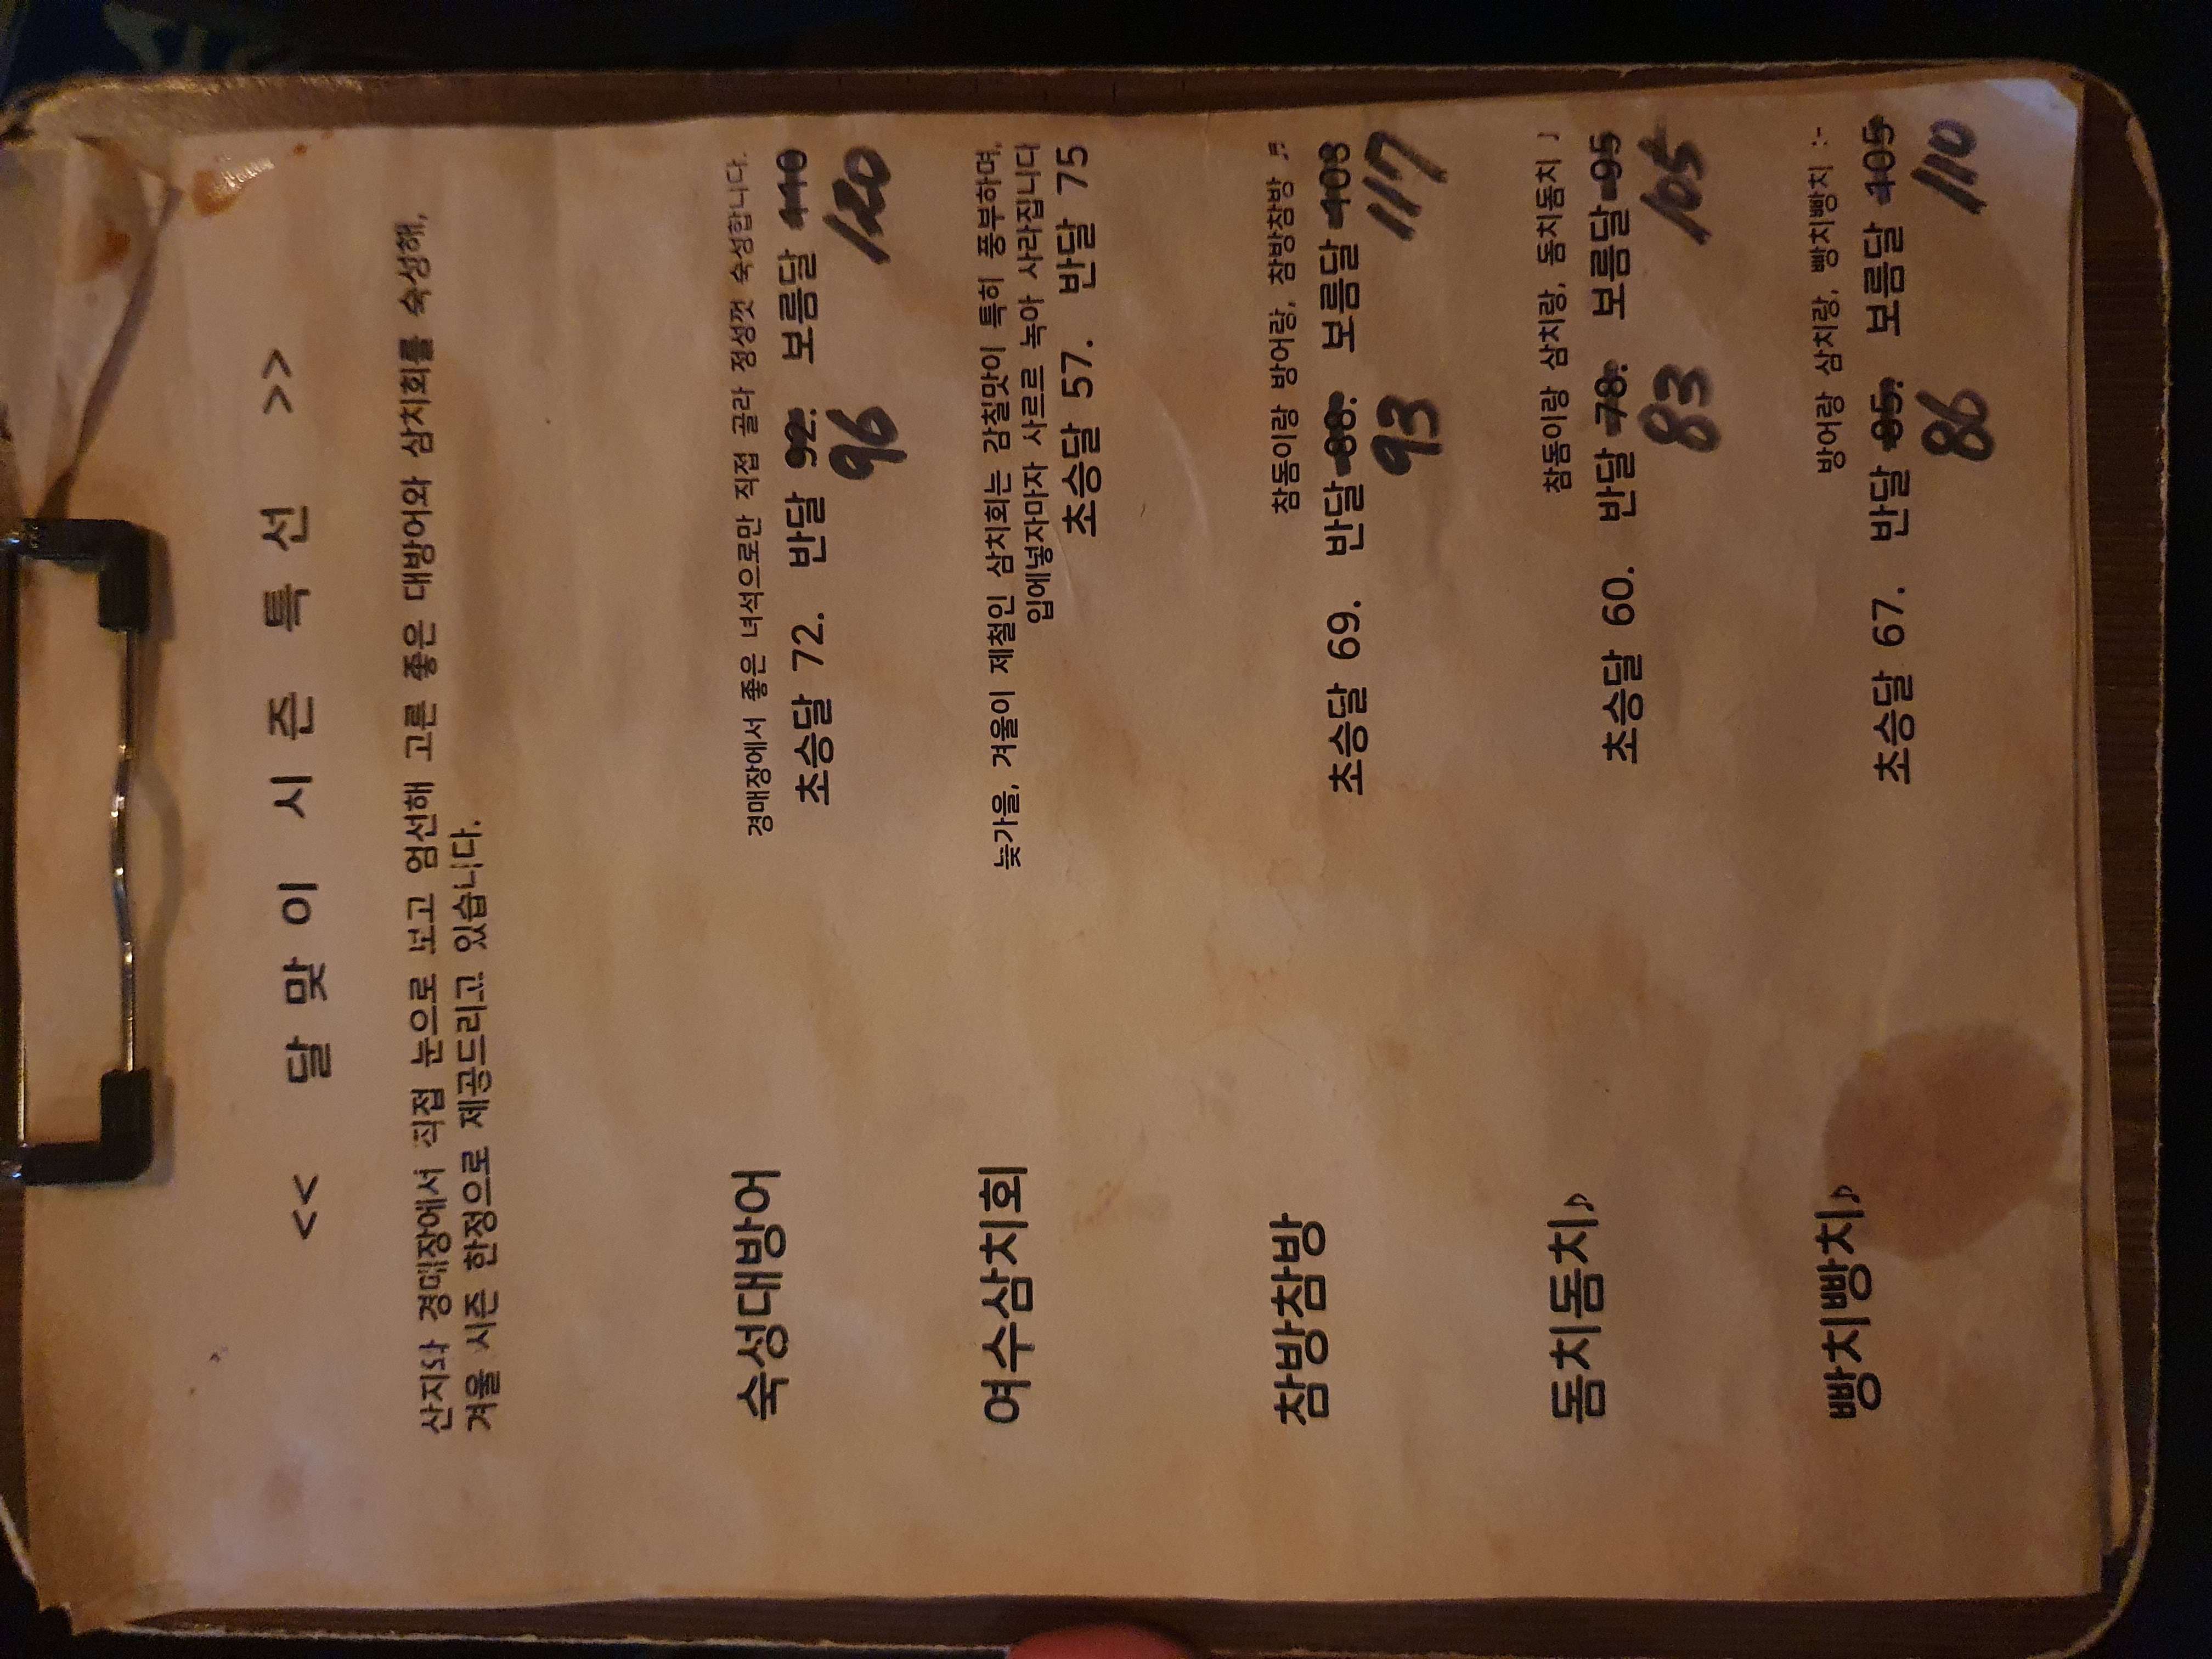 << 달 맞 이 시 즌 특 선 >>
산지와 경매장에서 직접 눈으로 보고 엄선해 고른 좋은 대방어와 삼치회를 숙성해,
겨울 시즌 한정으로 제공드리고 있습니다.
숙성대방어
경매장에서 좋은 녀석으로만 직접 골라 정성껏 숙성합니다.
초승달 72. 반달 92. 보름달 110
96 120
여수삼치회
늦가을, 겨울이 제철인 삼치회는 감칠맛이 특히 풍부하며,
입에넣자마자 사르르 녹아 사라집니다
초승달 57. 반달 75
참방참방
참돔이랑 방어랑, 참방참방 ♬
초승달 69. 반달 88. 보름달 108
93 117
돔치돔치♪
참돔이랑 삼치랑, 돔치돔치 ♪
초승달 60. 반달 78. 보름달 95
83 105
빵치빵치♪
방어랑 삼치랑, 빵치빵치 :-
초승달 67. 반달 85. 보름달 105
86 110